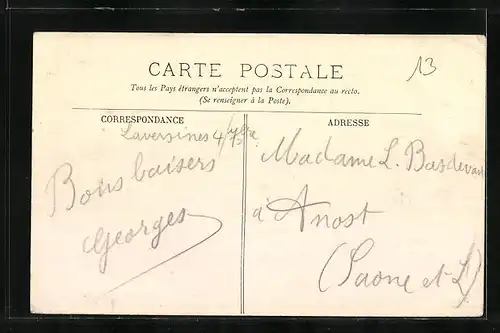 13
CARTE POSTALE
Tous les Pays étrangers n'acceptent pas la Correspondance au recto.
(Se renseigner à la Poste).
CORRESPONDANCE
Laversines 4/7
Bons baisers
Georges
ADRESSE
Madame L. Basdevant
à Anost
(Saone et L)